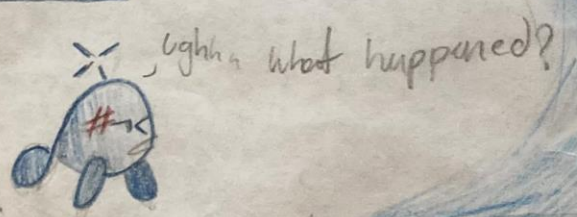 ughhh what happened?